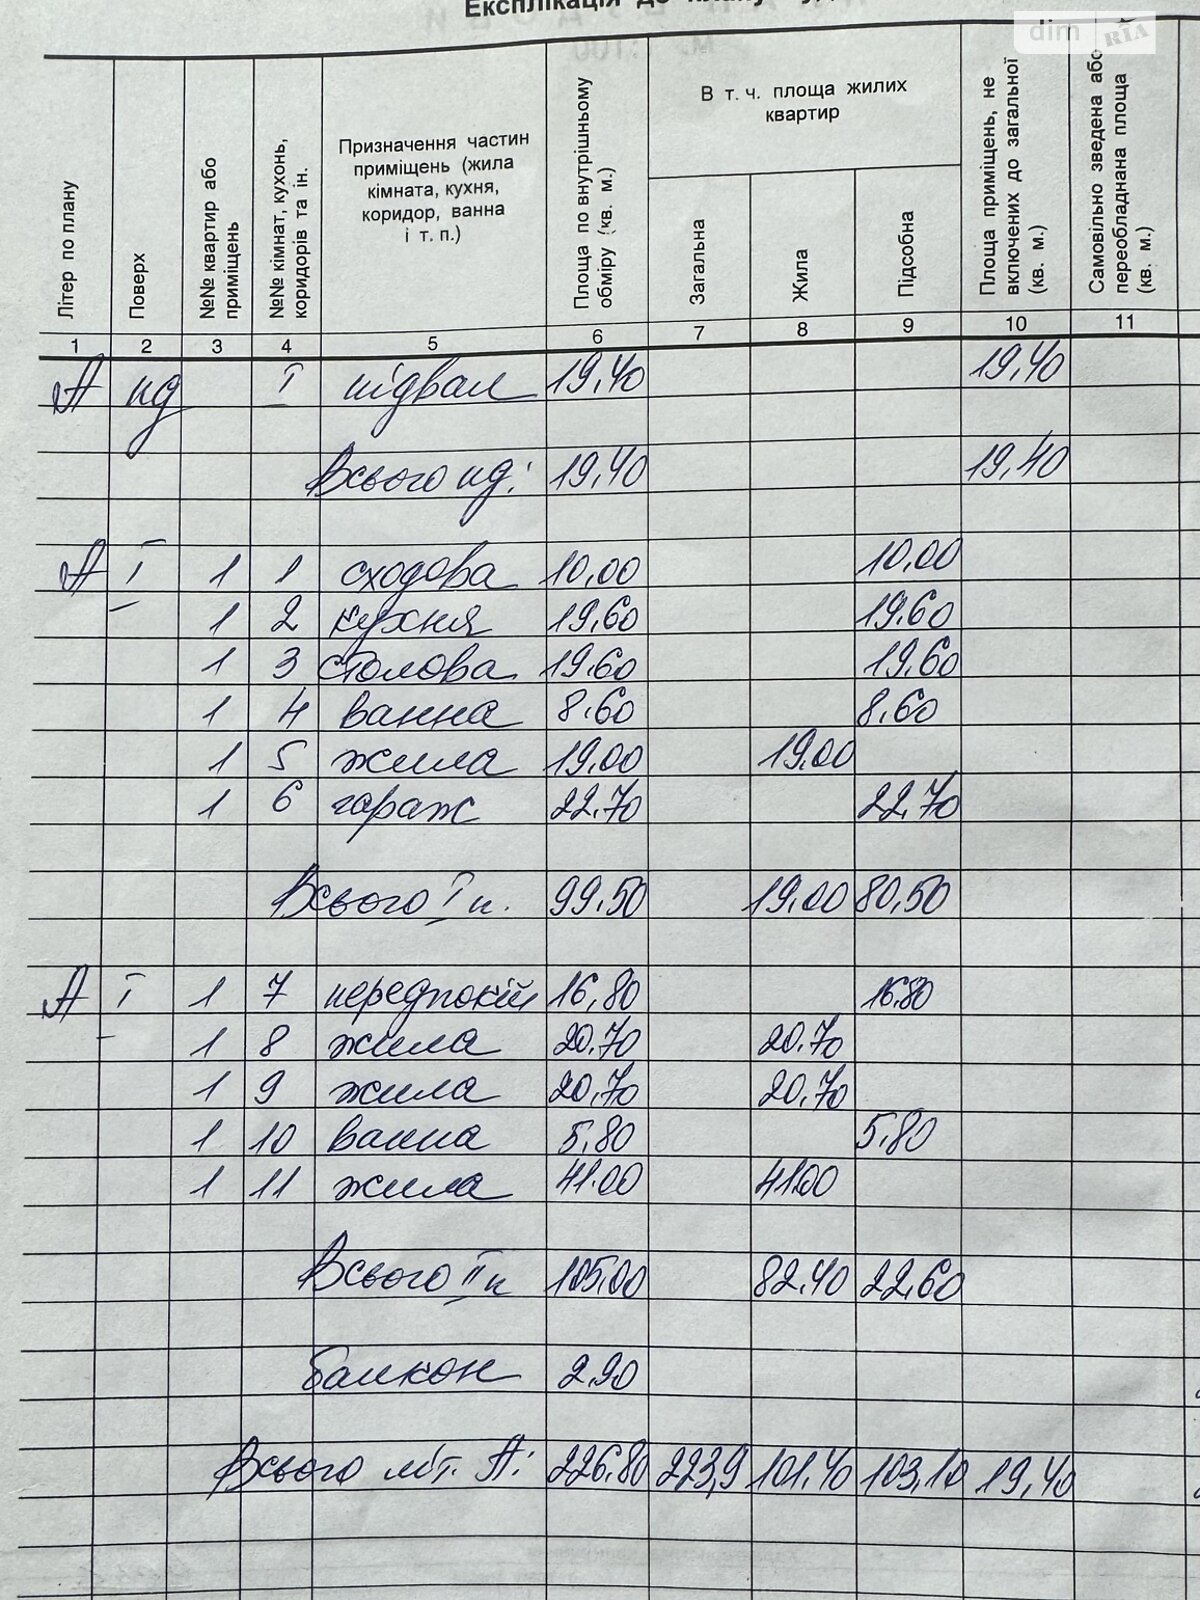 Експлікація до плану
dim RIA
Літер по плану
Поверх
№№ квартир або приміщень
№№ кімнат, кухонь, коридорів та ін.
Призначення частин
приміщень (жила
кімната, кухня,
коридор, ванна
і т. п.)
Площа по внутрішньому обміру (кв. м.)
В т. ч. площа жилих
квартир
Загальна
Жила
Підсобна
Площа приміщень, не включених до загальної (кв. м.)
Самовільно зведена або переобладнана площа (кв. м.)
1 2 3 4 5 6 7 8 9 10 11
А пд I підвал 19,40 19,40
Всього пд: 19,40 19,40
А I 1 1 сходова 10,00 10,00
1 2 кухня 19,60 19,60
1 3 столова 19,60 19,60
1 4 ванна 8,60 8,60
1 5 жила 19,00 19,00
1 6 гараж 22,70 22,70
Всього I п. 99,50 19,00 80,50
А I 1 7 передпокій 16,80 16,80
1 8 жила 20,70 20,70
1 9 жила 20,70 20,70
1 10 ванна 5,80 5,80
1 11 жила 41,00 41,00
Всього II п 105,00 82,40 22,60
балкон 2,90
Всього літ. А: 226,80 223,9 101,40 103,10 19,40